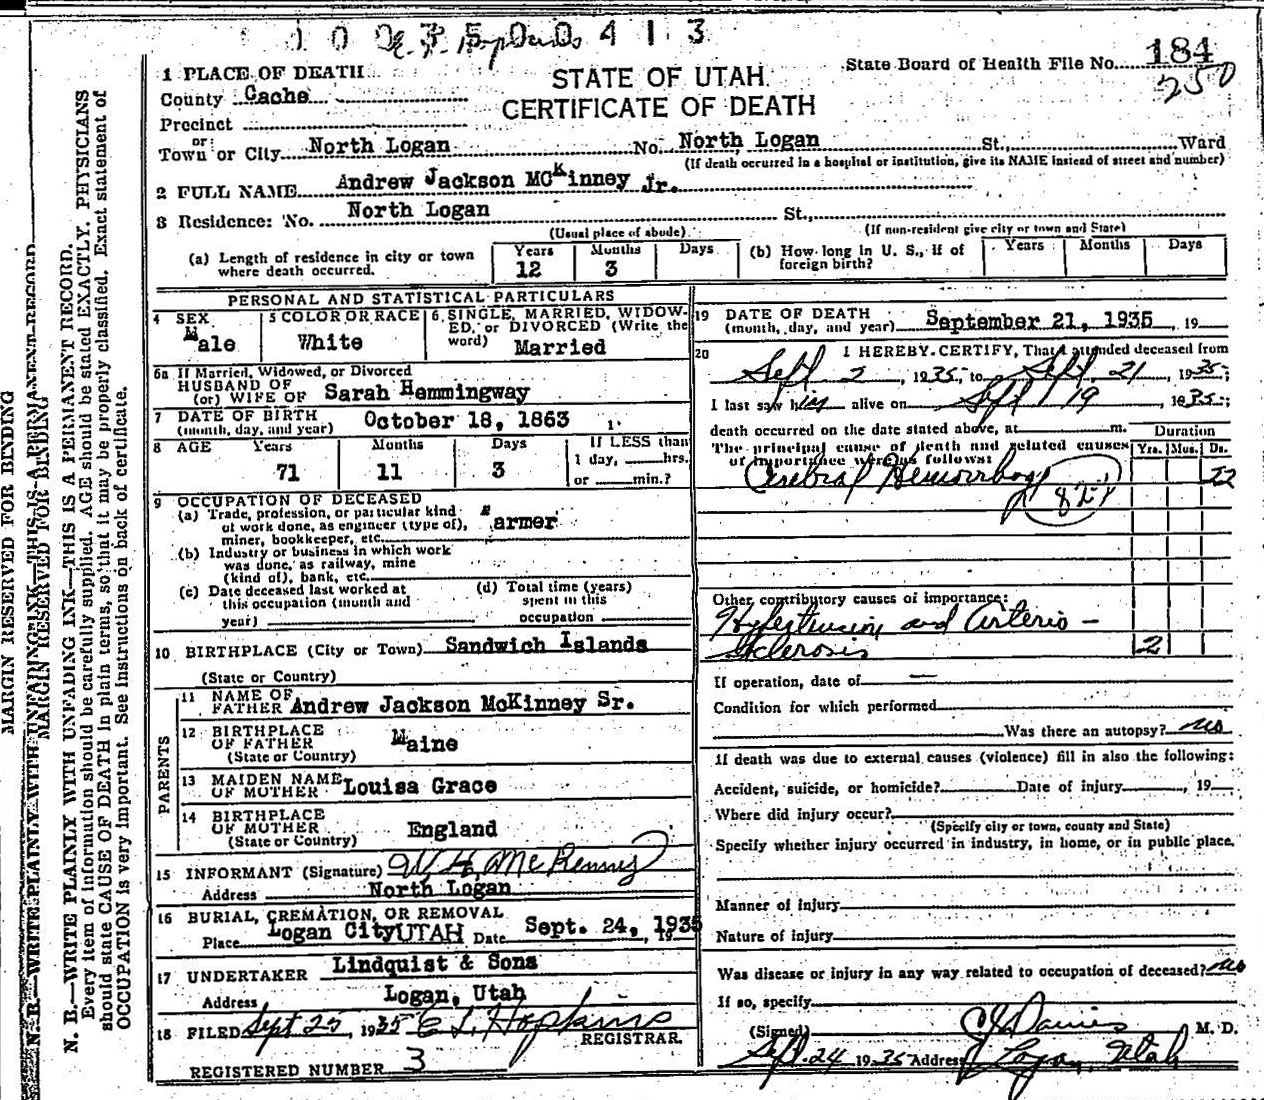 1 0 0 3 5 0 0 4 1 3
E. L. Hopkins
184
250
State Board of Health File No.
STATE OF UTAH
CERTIFICATE OF DEATH
1 PLACE OF DEATH
County Cache
Precinct
or
Town or City North Logan No. North Logan St., Ward
(If death occurred in a hospital or institution, give its NAME instead of street and number)
2 FULL NAME Andrew Jackson MCKinney Jr.
3 Residence: No. North Logan St.,
(Usual place of abode) (If non-resident give city or town and State)
(a) Length of residence in city or town where death occurred. Years 12 Months 3 Days
(b) How long in U. S., if of foreign birth? Years Months Days
PERSONAL AND STATISTICAL PARTICULARS
4 SEX Male
5 COLOR OR RACE White
6 SINGLE, MARRIED, WIDOWED, or DIVORCED (Write the word) Married
6a If Married, Widowed, or Divorced
HUSBAND OF
(or) WIFE OF Sarah Hemmingway
7 DATE OF BIRTH
(month, day, and year) October 18, 1863
8 AGE Years 71 Months 11 Days 3 If LESS than 1 day, hrs. or min.?
9 OCCUPATION OF DECEASED
(a) Trade, profession, or particular kind of work done, as engineer (type of), miner, bookkeeper, etc. Farmer
(b) Industry or business in which work was done, as railway, mine (kind of), bank, etc.
(c) Date deceased last worked at this occupation (month and year)
(d) Total time (years) spent in this occupation
10 BIRTHPLACE (City or Town) Sandwich Islands
(State or Country)
PARENTS
11 NAME OF FATHER Andrew Jackson McKinney Sr.
12 BIRTHPLACE OF FATHER Maine
(State or Country)
13 MAIDEN NAME OF MOTHER Louisa Grace
14 BIRTHPLACE OF MOTHER England
(State or Country)
15 INFORMANT (Signature) W. H. McKenney
Address North Logan
16 BURIAL, CREMATION, OR REMOVAL
Place Logan City UTAH Date Sept. 24, 1935, 19
17 UNDERTAKER Lindquist & Sons
Address Logan, Utah
18 FILED Sept 25, 1935 E L Hopkins
REGISTRAR.
REGISTERED NUMBER 3
19 DATE OF DEATH
(month, day, and year) September 21, 1935, 19
20 I HEREBY CERTIFY, That I attended deceased from
Sept 2, 1935, to Sept. 21, 1935;
I last saw him alive on Sept 19, 1935;
death occurred on the date stated above, at m.
Duration
The principal cause of death and related causes of importance were as follows: Yrs. Mos. Ds.
Cerebral Hemorrhage
Other contributory causes of importance:
Hypertension and Arterio-
sclerosis 2
If operation, date of —
Condition for which performed
Was there an autopsy? no
If death was due to external causes (violence) fill in also the following:
Accident, suicide, or homicide? Date of injury, 19
Where did injury occur?
(Specify city or town, county and State)
Specify whether injury occurred in industry, in home, or in public place.
Manner of injury
Nature of injury
Was disease or injury in any way related to occupation of deceased? no
If so, specify
(Signed) Davies M. D.
Sept. 24 1935 Address Logan, Utah
MARGIN RESERVED FOR BINDING
N. B.—WRITE PLAINLY WITH UNFADING INK—THIS IS A PERMANENT RECORD
MARGIN RESERVED FOR BINDING
N. B.—WRITE PLAINLY WITH UNFADING INK—THIS IS A PERMANENT RECORD.
Every item of information should be carefully supplied. AGE should be stated EXACTLY. PHYSICIANS
should state CAUSE OF DEATH in plain terms, so that it may be properly classified. Exact statement of
OCCUPATION is very important. See instructions on back of certificate.